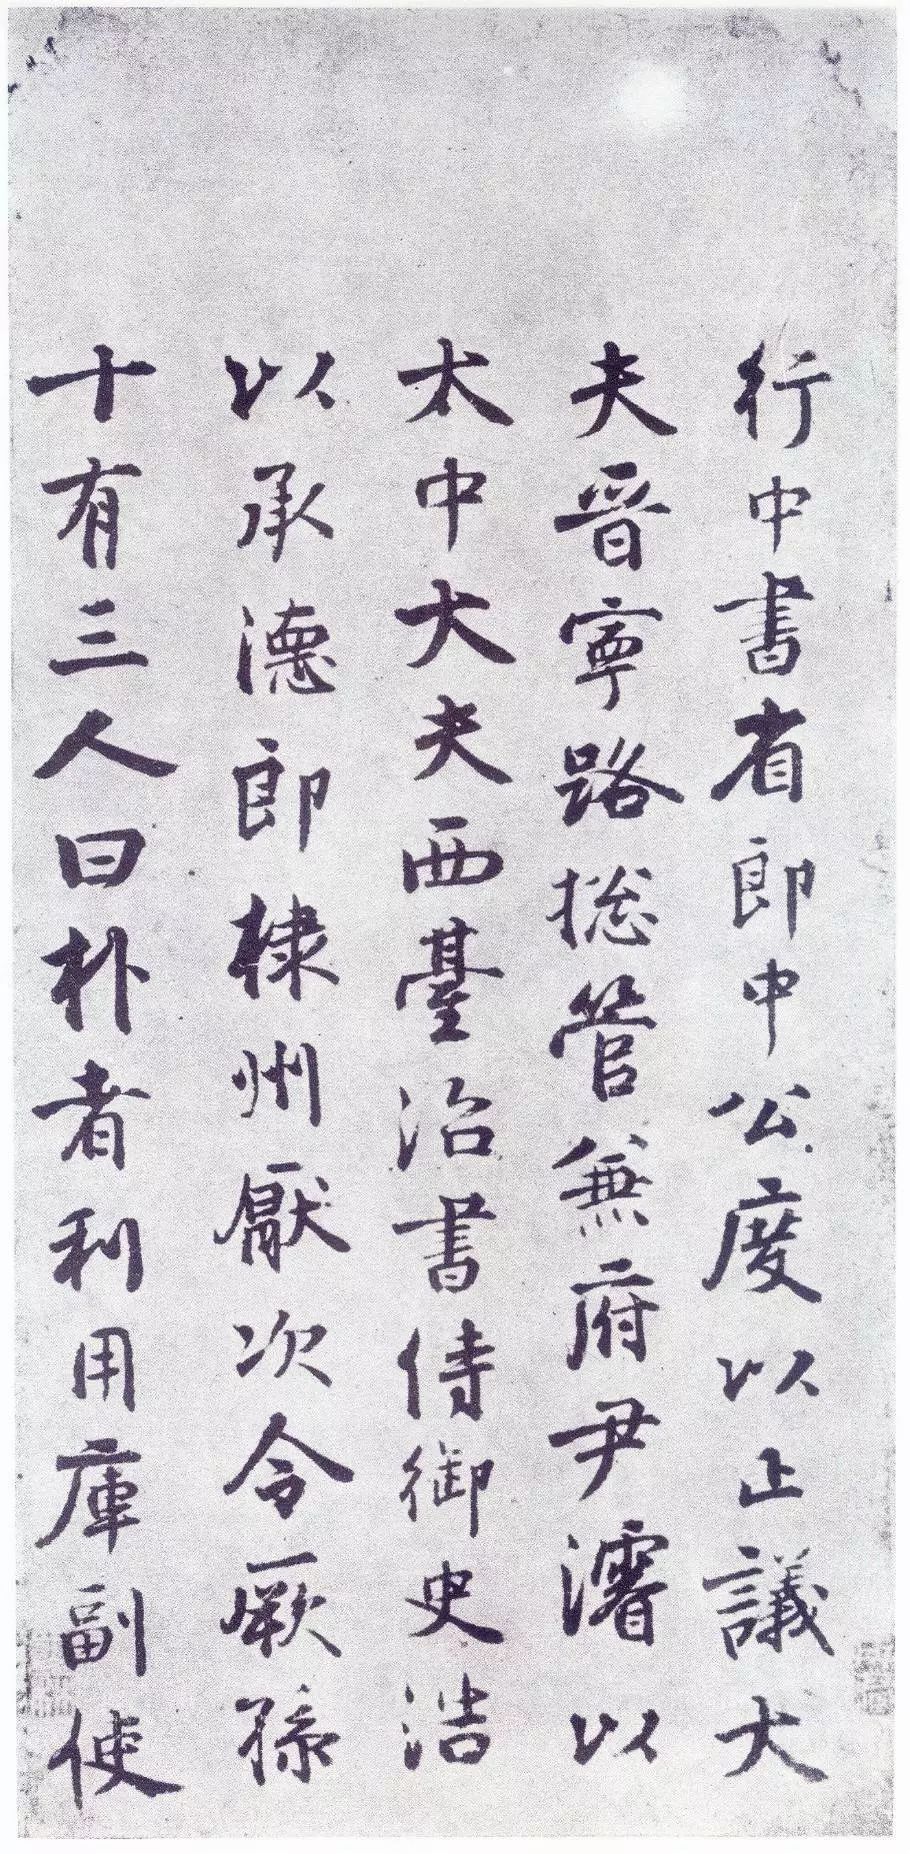 行中書省郎中公度以止議大
夫晉寧路総管兼府尹濬以
太中大夫西臺治書侍御史浩
以承德郎棣州厭次令厥孫
十有三人曰朴者利用庫副使